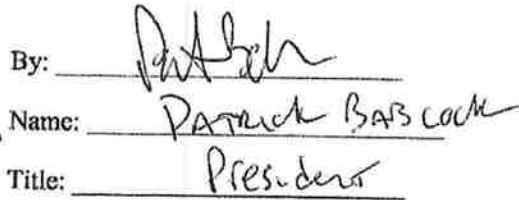 By:
Name: PATRICK BABCOCK
Title: President